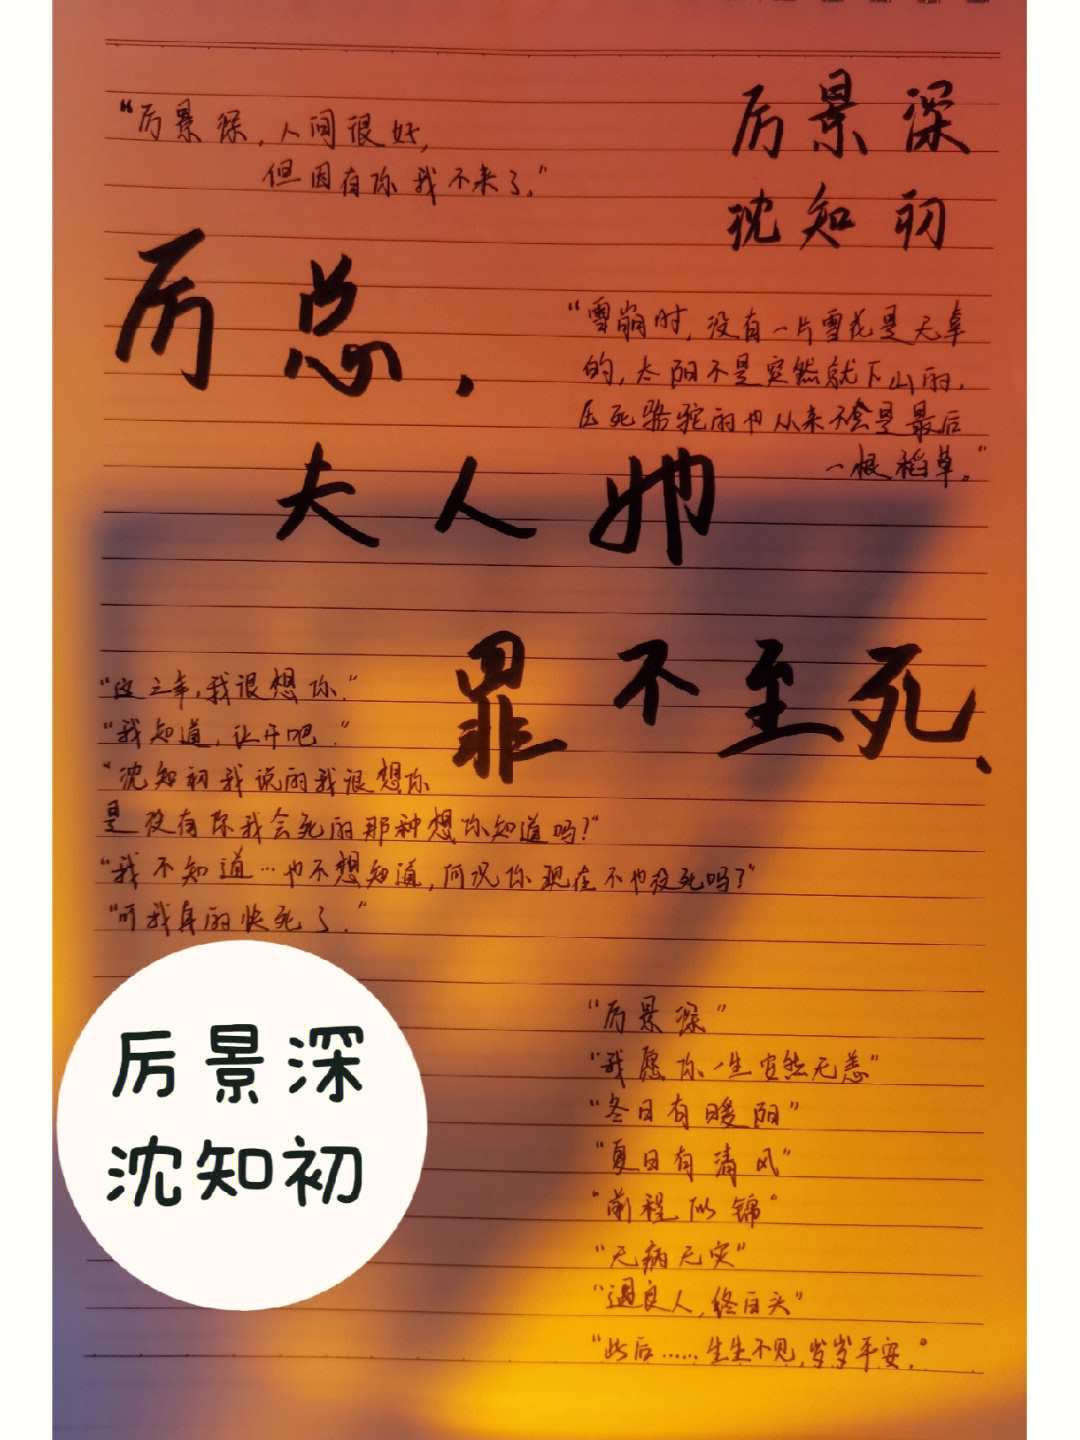 “厉景深，人间很好，
但因有你我不来了.”
厉景深
沈知初
厉总，
夫人她
罪不至死、
“雪崩时，没有一片雪花是无辜
的，太阳不是突然就下山的，
压死骆驼的也从来不会是最后
一根稻草。”
“这三年，我很想你.”
“我知道，让开吧.”
“沈知初我说的我很想你
是没有你我会死的那种想你知道吗？”
“我不知道…也不想知道，何况你现在不也没死吗？”
“可我真的快死了.”
厉景深
沈知初
“厉景深”
“我愿你一生安然无恙”
“冬日有暖阳”
“夏日有清风”
“前程似锦”
“无病无灾”
“遇良人，终白头”
“此后……生生不见，岁岁平安.”